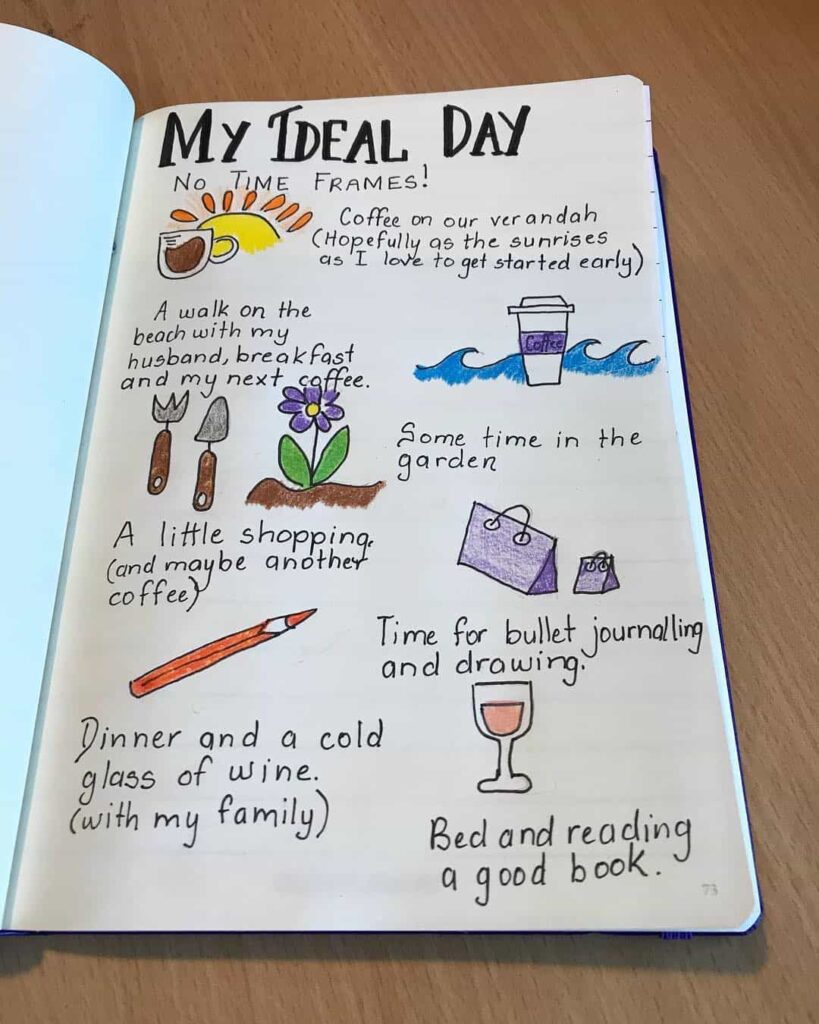 MY IDEAL DAY
NO TIME FRAMES!
Coffee on our verandah
(Hopefully as the sunrises
as I love to get started early)
A walk on the
beach with my
husband, breakfast
and my next coffee.
Coffee
Some time in the
garden
A little shopping.
(and maybe another
coffee)
Time for bullet journalling
and drawing.
Dinner and a cold
glass of wine.
(with my family)
Bed and reading
a good book.
73